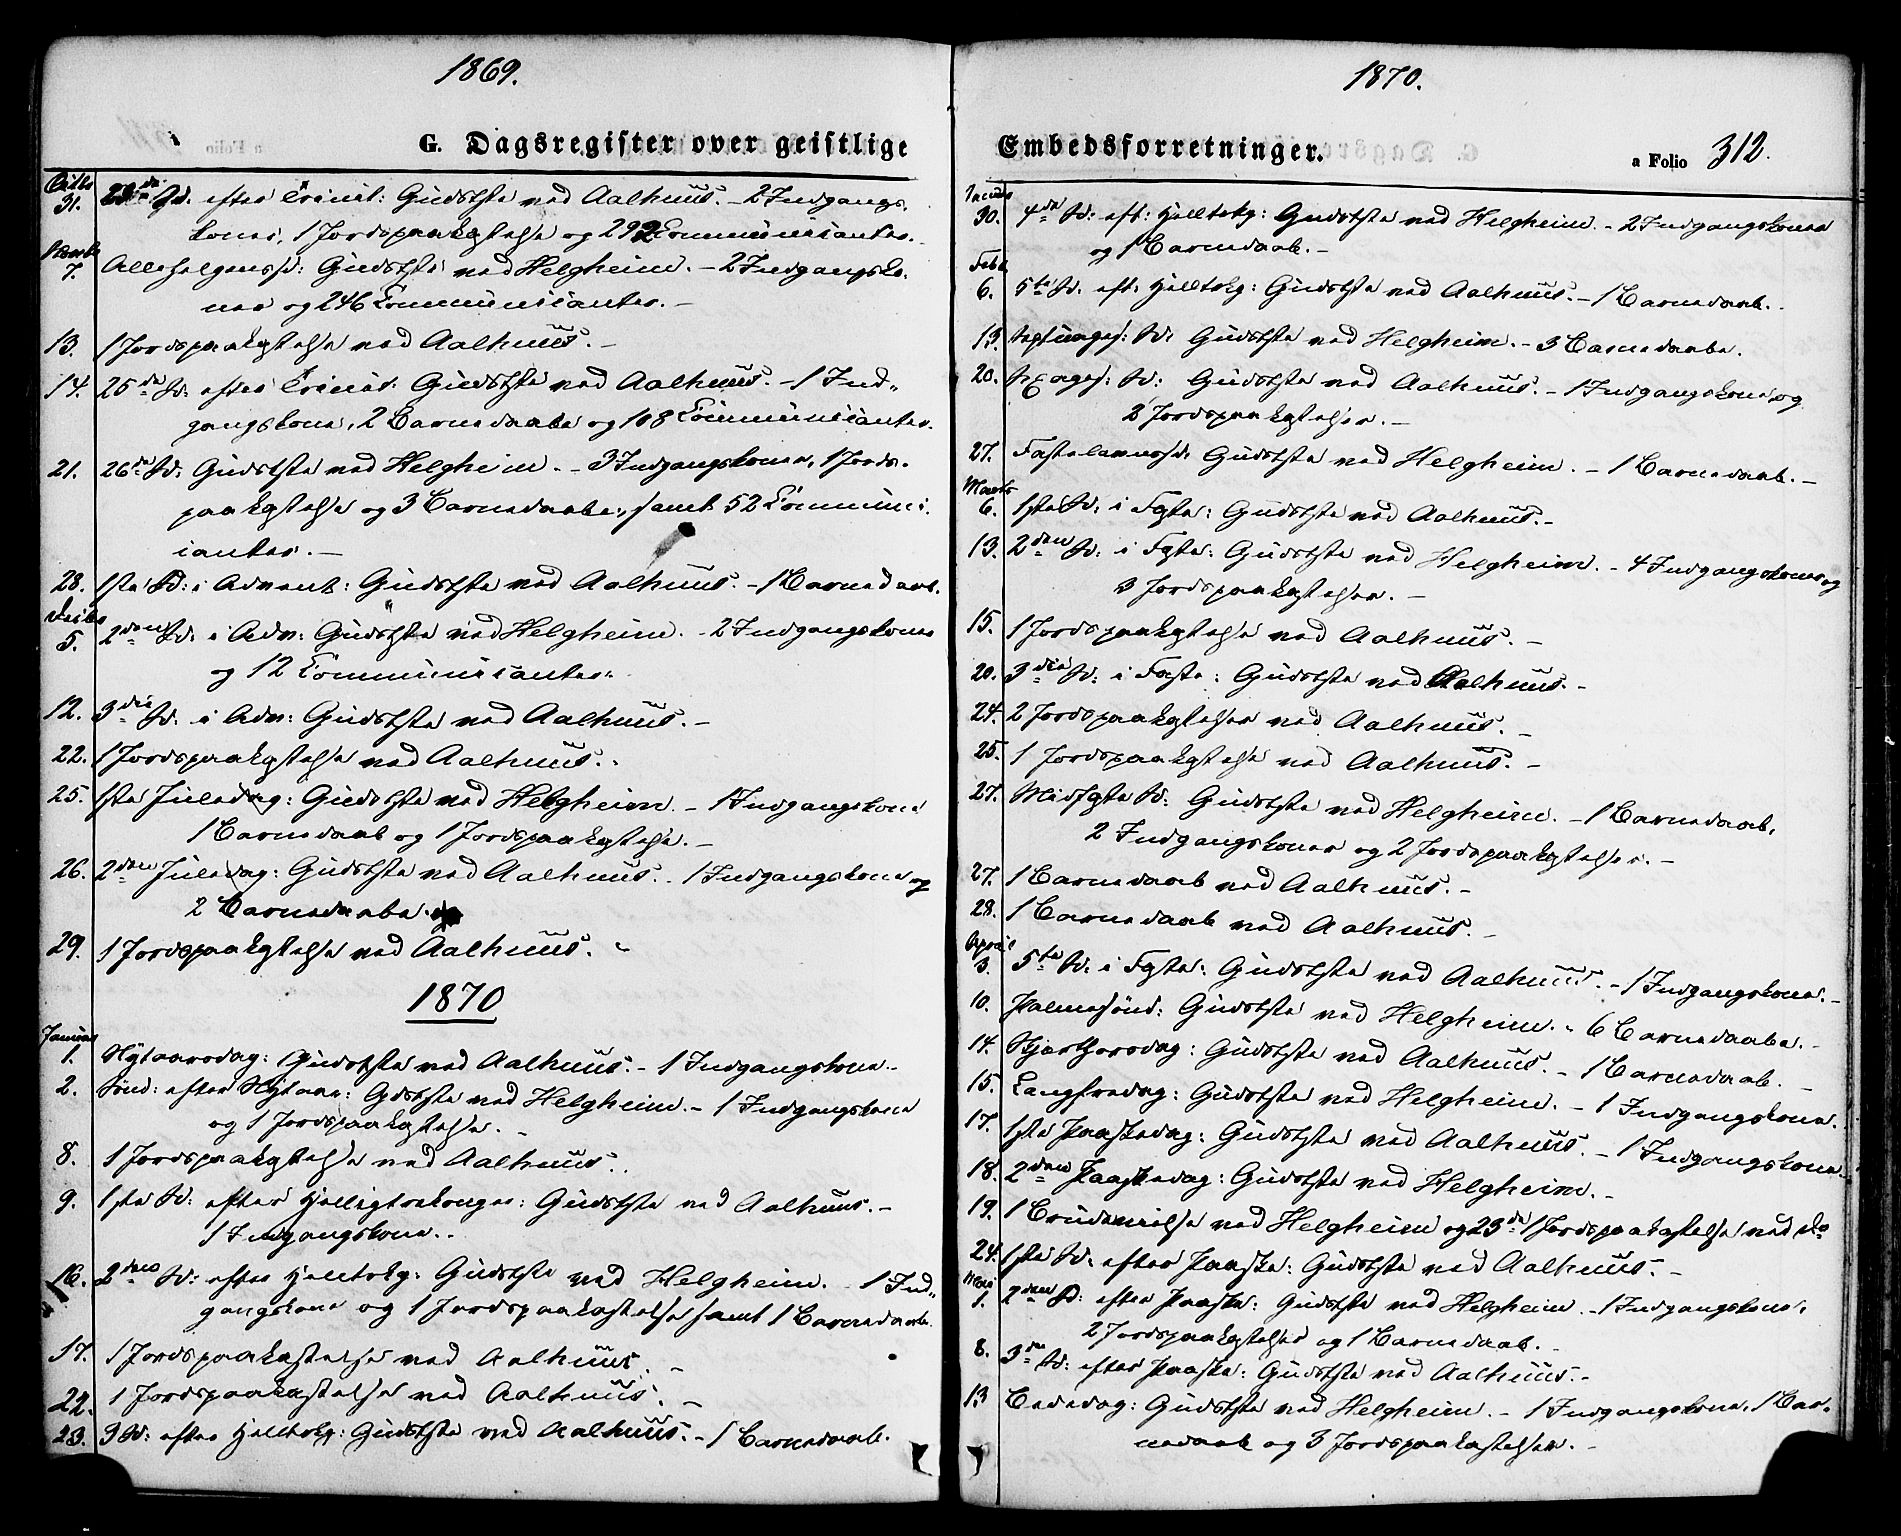 1869.
G. Dagsregister over geistlige
Octbr
31. 23de Sd. efter Trinit: Gudstste ved Aalhuus. - 2 Indgangs-
koner, 1 Jordspaakastelse og 292 Communicanter.
Novbr
7. Allehelgenssd: Gudstste ved Helgheim. - 2 Indgangsko-
ner og 246 Communicanter. -
13. 1 Jordspaakastelse ved Aalhuus. -
14. 25de Sd. efter Trinit: Gudstste ved Aalhuus. - 1 Ind-
gangskone, 2 Barnedaabe og 108 Communicanter.
21. 26de Sd: Gudstste ved Helgheim. - 3 Indgangskoner, 1 Jords-
paakastelse og 3 Barnedaabe, samt 52 Communi-
canter. -
28. 1ste Sd: i Advent: Gudstste ved Aalhuus. - 1 Barnedaab.
Decbr
5. 2den Sd: i Adv: Gudstste ved Helgheim. - 2 Indgangskoner
og 12 Communicanter.
12. 3die Sd. i Adv: Gudstste ved Aalhuus. -
22. 1 Jordspaakastelse ved Aalhuus. -
25. 1ste Juledag: Gudstste ved Helgheim. - 1 Indgangskone
1 Barnedaab og 1 Jordspaakastelse. -
26. 2den Juledag: Gudstste ved Aalhuus. - 1 Indgangskone og
2 Barnedaabe.
29. 1 Jordspaakastelse ved Aalhuus. -
1870
Januar
1. Nytaarsdag: Gudstste ved Aalhuus. - 1 Indgangskone. -
2. Sønd: efter Nytaar: Gdstste ved Helgheim. - 1 Indgangskone
og 1 Jordspaakastelse. -
8. 1 Jordspaakastelse ved Aalhuus. -
9. 1ste Sd: efter Helligtrekonger: Gudstste ved Aalhuus. -
1 Indgangskone. -
16. 2den Sd: efter Helltrkg: Gudstste ved Helgheim. - 1 Ind-
gangskone og 1 Jordspaakastelse samt 1 Barnedaab.
17. 1 Jordspaakastelse ved Aalhuus. -
22. 1 Jordspaakastelse ved Aalhuus. -
23. 3 Sd: efter Helltrkg: Gudstste ved Aalhuus. - 1 Barnedaab.
1870.
Embedsforretninger.
a Folio 312.
Januar
30. 4de Sd: eft: Helltrkg: Gudstste ved Helgheim. - 2 Indgangskoner
og 1 Barnedaab. -
Febr
6. 5te Sd. eft: Helltrkg: Gudstste ved Aalhuus. - 1 Barnedaab. -
13. Septuages: Sd: Gudstste ved Helgheim. - 3 Barnedaabe.
20. Sexages: Sd: Gudstste ved Aalhuus. - 1 Indgangskone og
2 Jordspaakastelser. -
27. Fastelavnssd: Gudstste ved Helgheim. - 1 Barnedaab. -
Marts
6. 1ste Sd: i Faste: Gudstste ved Aalhuus. -
13. 2den Sd: i Faste: Gudstste ved Helgheim. - 4 Indgangskoner og
3 Jordspaakastelser. -
15. 1 Jordspaakastelse ved Aalhuus. -
20. 3die Sd: i Faste: Gudstste ved Aalhuus. -
24. 2 Jordspaakastelser ved Aalhuus. -
25. 1 Jordspaakastelse ved Aalhuus. -
27. Midfaste Sd: Gudstste ved Helgheim. - 1 Barnedaab,
2 Indgangskoner og 2 Jordspaakastelser. -
27. 1 Barnedaab ved Aalhuus. -
28. 1 Barnedaab ved Aalhuus. -
April
3. 5te Sd: i Faste: Gudstste ved Aalhuus. - 1 Indgangskone. -
10. Palmesønd: Gudstste ved Helgheim. - 6 Barnedaabe. -
14. Skjærthorsdag: Gudstste ved Aalhuus. - 1 Barnedaab. -
15. Langfredag: Gudstste ved Helgheim. - 1 Indgangskone.
17. 1ste Paaskedag: Gudstste ved Aalhuus. - 1 Indgangskone. -
18. 2den Paaskedag: Gudstste ved Helgheim. -
19. 1 Brudevielse ved Helgheim og 23de 1 Jordspaakastelse ved do
24. 1ste Sd: efter Paaske: Gudstste ved Aalhuus. -
Mai
1. 2den Sd: efter Paaske: Gudstste ved Helgheim. - 1 Indgangskone,
2 Jordspaakastelser og 1 Barnedaab. -
8. 3die Sd: efter Paaske: Gudstste ved Aalhuus. -
13. Bededag: Gudstste ved Helgheim. - 1 Indgangskone, 1 Bar-
nedaab og 3 Jordspaakastelser. -